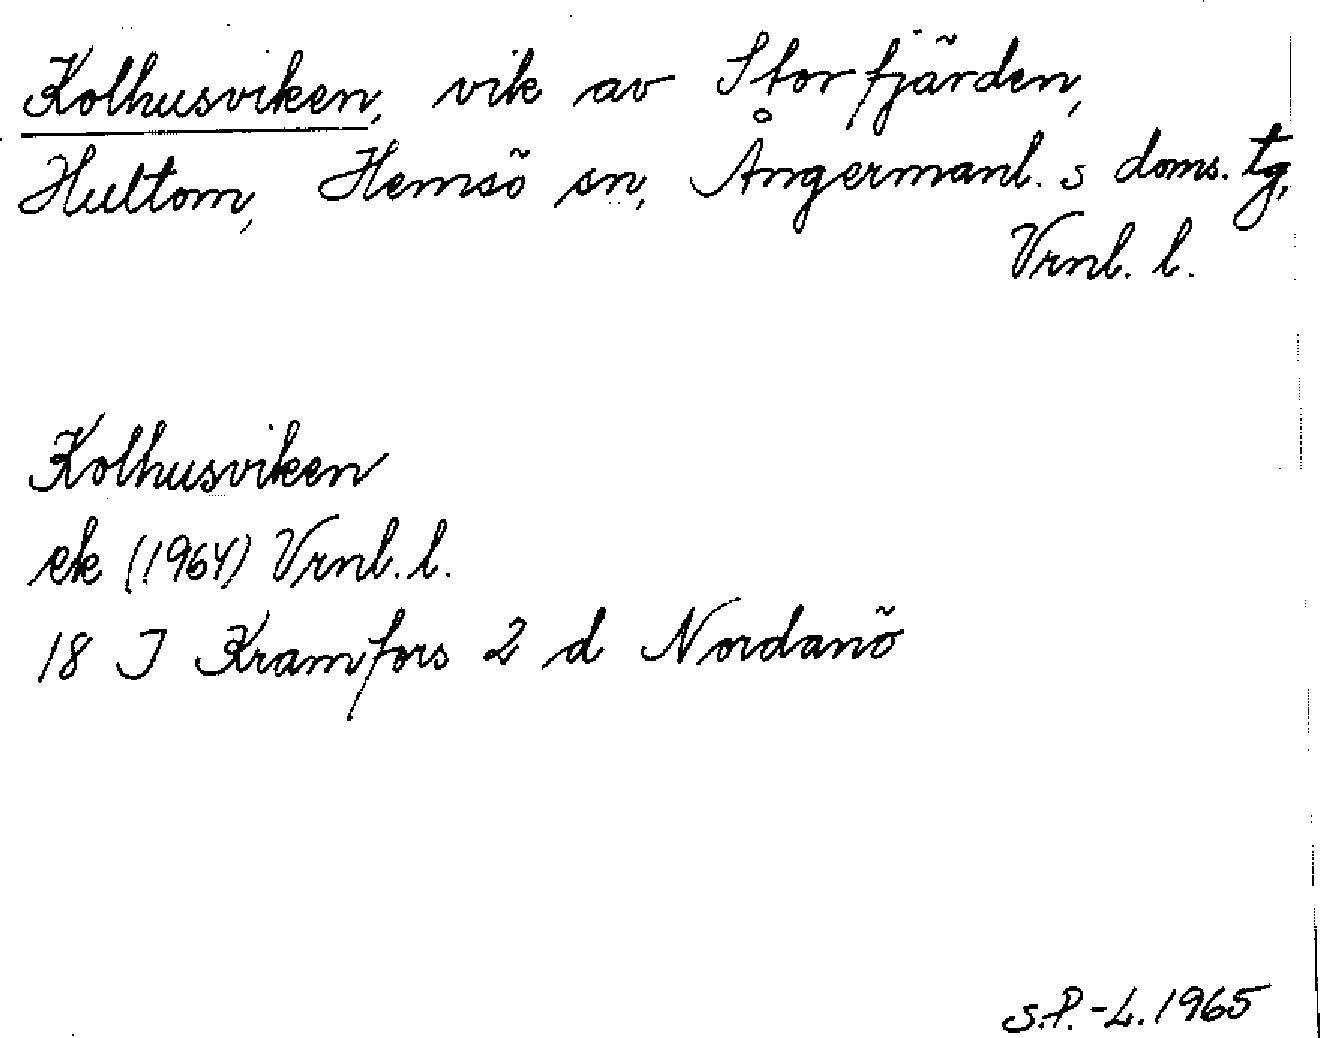 Kolhusviken, vik av Storfjärden,
Hultom, Hemsö sn, Ångermanl. s doms. tg,
Vrnl. l.
Kolhusviken
ek (1964) Vrnl. l.
18 I Kramfors 2 d Nordanö
S.P.-L. 1965